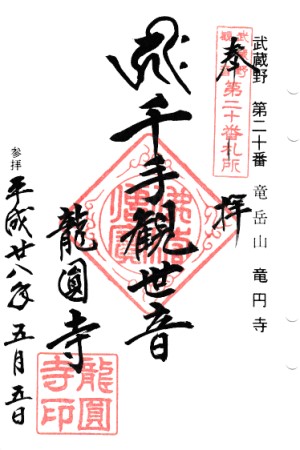 武蔵野 第二十番 竜岳山 竜円寺
武蔵野
観音
第二十番札所
奉拝
千手観世音
龍圓寺
参拝 平成廿八年 五月五日
佛法僧寳
龍圓
寺印